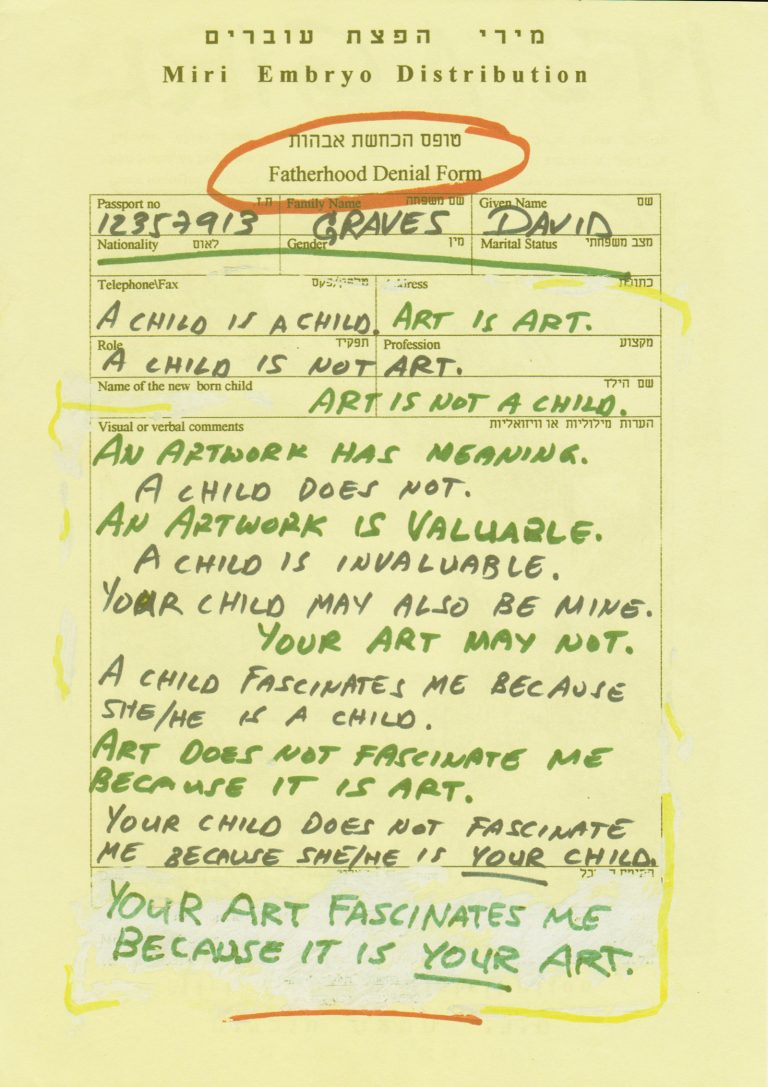 מירי הפצת עוברים
Miri Embryo Distribution
טופס הכחשת אבהות
Fatherhood Denial Form
Passport no ת.ז. Family Name שם משפחה Given Name שם
12357913 GRAVES DAVID
Nationality לאום Gender מין Marital Status מצב משפחתי
Telephone\Fax טלפון/פקס Address כתובת
A CHILD IS A CHILD. ART IS ART.
Role תפקיד Profession מקצוע
A CHILD IS NOT ART.
Name of the new born child שם הילד
ART IS NOT A CHILD.
Visual or verbal comments הערות מילוליות או וויזואליות
AN ARTWORK HAS MEANING.
A CHILD DOES NOT.
AN ARTWORK IS VALUABLE.
A CHILD IS INVALUABLE.
YOUR CHILD MAY ALSO BE MINE.
YOUR ART MAY NOT.
A CHILD FASCINATES ME BECAUSE
SHE/HE IS A CHILD.
ART DOES NOT FASCINATE ME
BECAUSE IT IS ART.
YOUR CHILD DOES NOT FASCINATE
ME BECAUSE SHE/HE IS YOUR CHILD.
YOUR ART FASCINATES ME
BECAUSE IT IS YOUR ART.